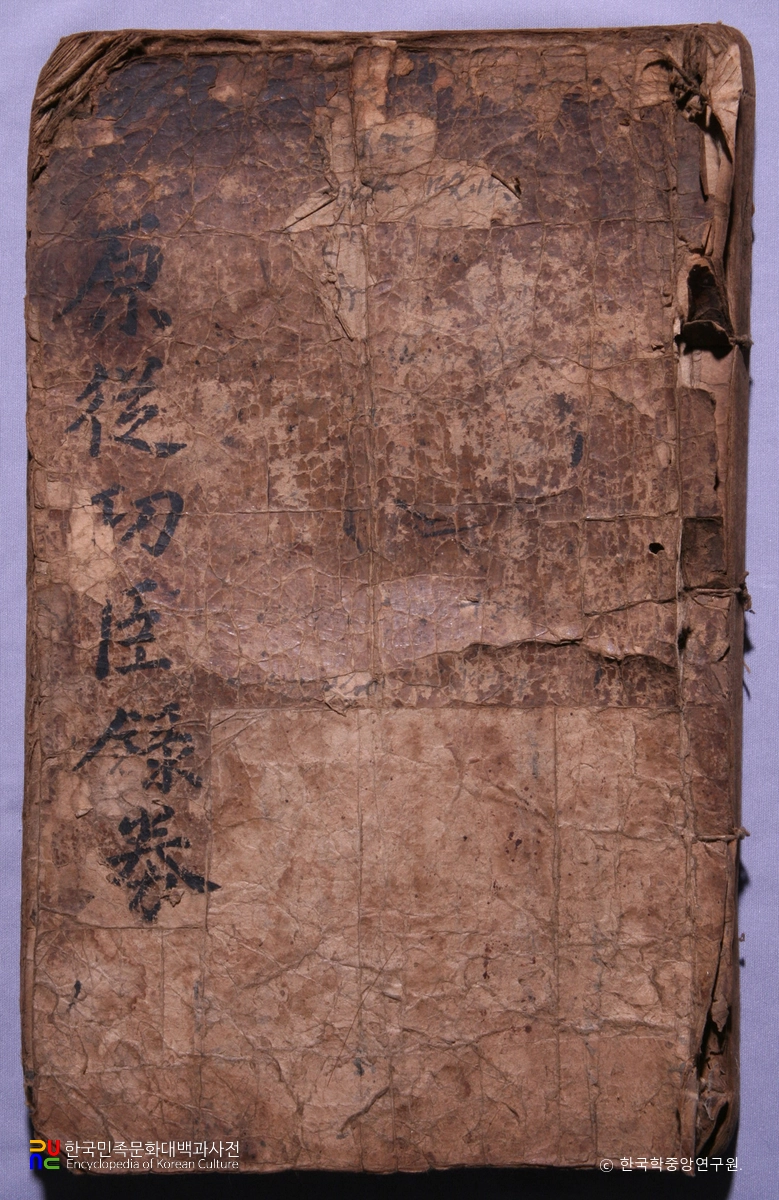 原從功臣錄券
한국민족문화대백과사전
Encyclopedia of Korean Culture
ⓒ 한국학중앙연구원